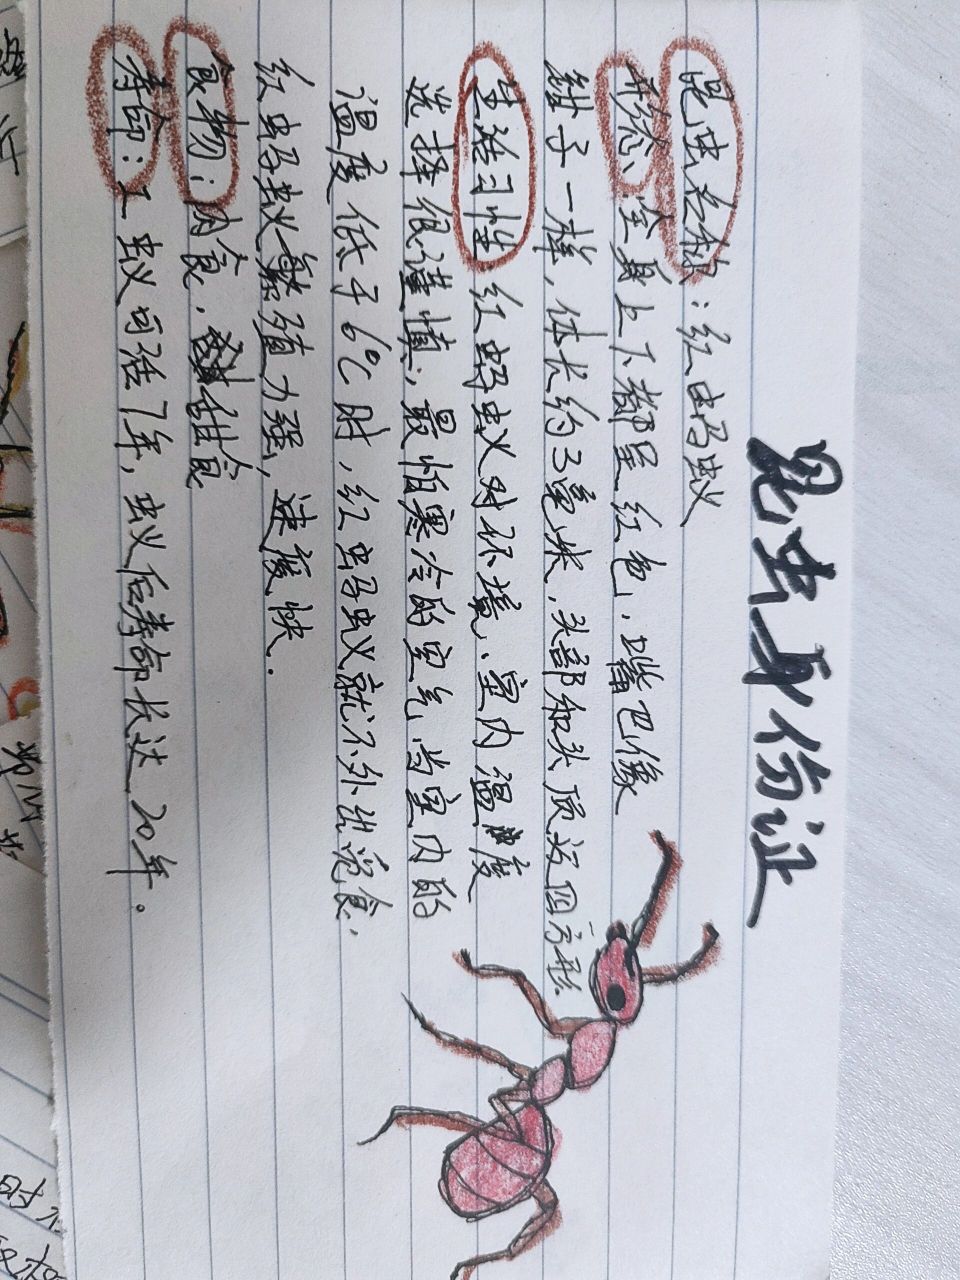 昆虫身份证
昆虫名称：红蚂蚁
形态：全身上下都呈红色，嘴巴像
钳子一样，体长约3毫米，头部和头顶近四方形
生活习性 红蚂蚁对环境、室内温度
选择很谨慎，最怕寒冷的空气，当室内的
温度低于6℃时，红蚂蚁就不外出觅食，
红蚂蚁繁殖力强，速度快．
食物：肉食，甜食
寿命：工蚁可活7年，蚁后寿命长达20年．